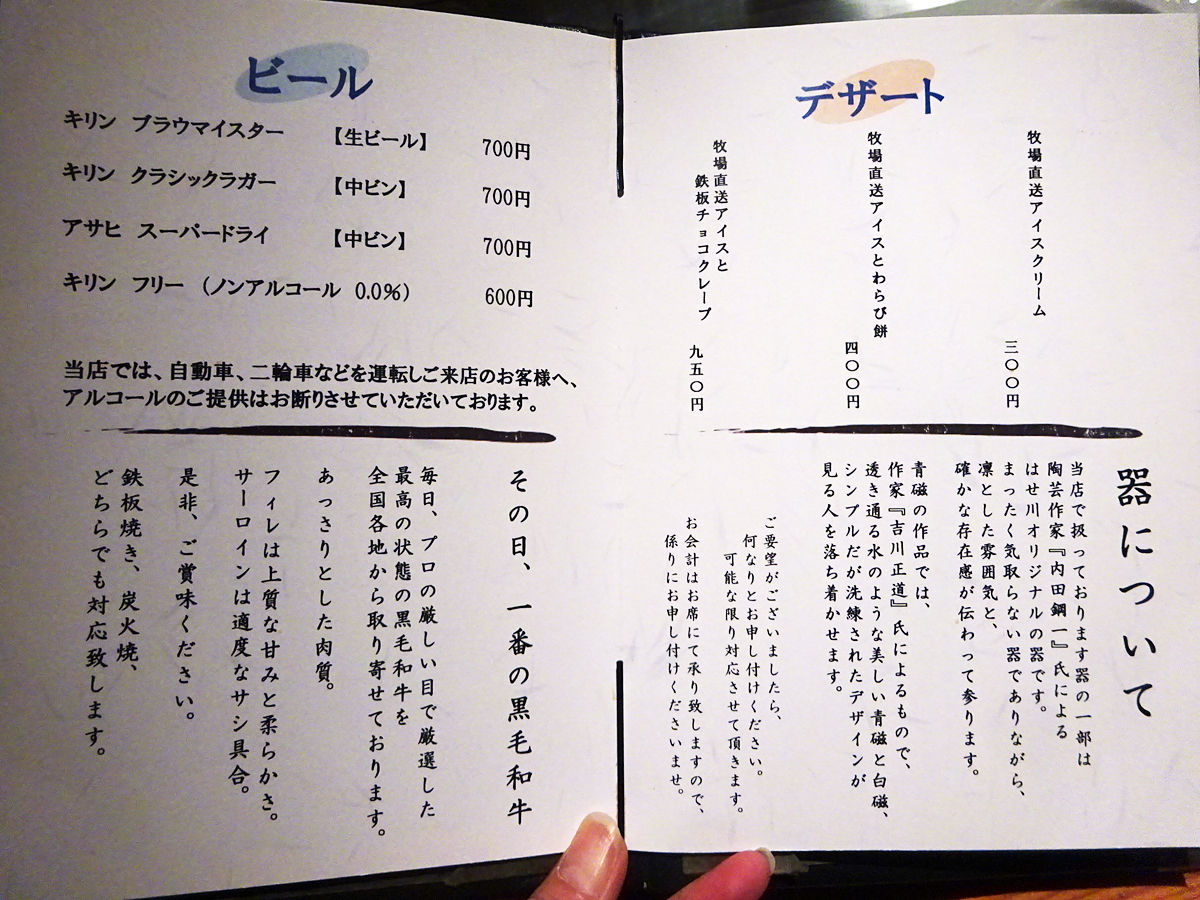 ビール
キリン ブラウマイスター 【生ビール】 700円
キリン クラシックラガー 【中ビン】 700円
アサヒ スーパードライ 【中ビン】 700円
キリン フリー (ノンアルコール 0.0%) 600円
当店では、自動車、二輪車などを運転しご来店のお客様へ、
アルコールのご提供はお断りさせていただいております。
その日、一番の黒毛和牛
毎日、プロの厳しい目で厳選した
最高の状態の黒毛和牛を
全国各地から取り寄せております。
あっさりとした肉質。
フィレは上質な甘みと柔らかさ。
サーロインは適度なサシ具合。
是非、ご賞味ください。
鉄板焼き、炭火焼、
どちらでも対応致します。
デザート
牧場直送アイスクリーム 三〇〇円
牧場直送アイスとわらび餅 四〇〇円
牧場直送アイスと
鉄板チョコクレープ 九五〇円
器について
当店で扱っております器の一部は
陶芸作家『内田鋼一』氏による
はせ川オリジナルの器です。
まったく気取らない器でありながら、
凛とした雰囲気と、
確かな存在感が伝わって参ります。
青磁の作品では、
作家『吉川正道』氏によるもので、
透き通る水のような美しい青磁と白磁、
シンプルだが洗練されたデザインが
見る人を落ち着かせます。
ご要望がございましたら、
何なりとお申し付けください。
可能な限り対応させて頂きます。
お会計はお席にて承り致しますので、
係りにお申し付けくださいませ。